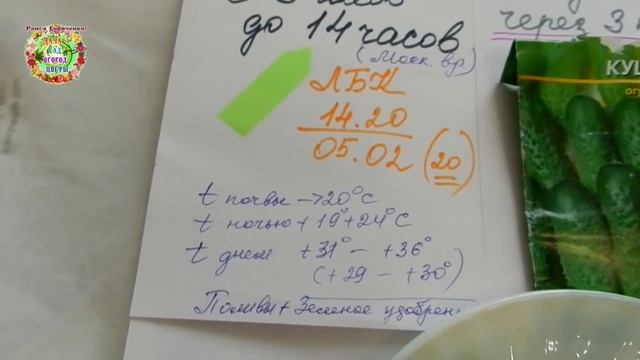 Раиса Горяченко
ДАЧА
САД
ОГОРОД
ЦВЕТЫ
до 14 часов
(Моск. вр)
через 3
ЛБК
14.20
05.02 (20)
КУ
t почвы →20°С
t ночью +19°+24°С
t днем +31° – +36°
(+29 – +30°)
Поливы + Зеленое удобрен